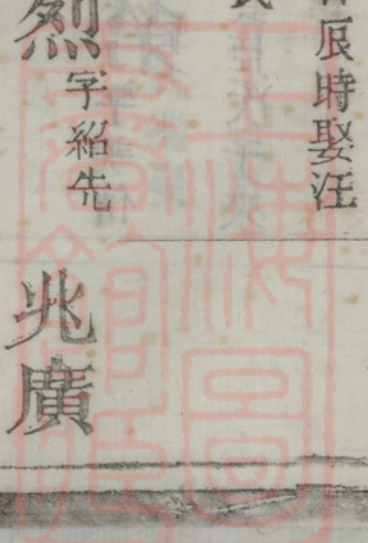 辰時娶汪
烈 字紹先
兆廣